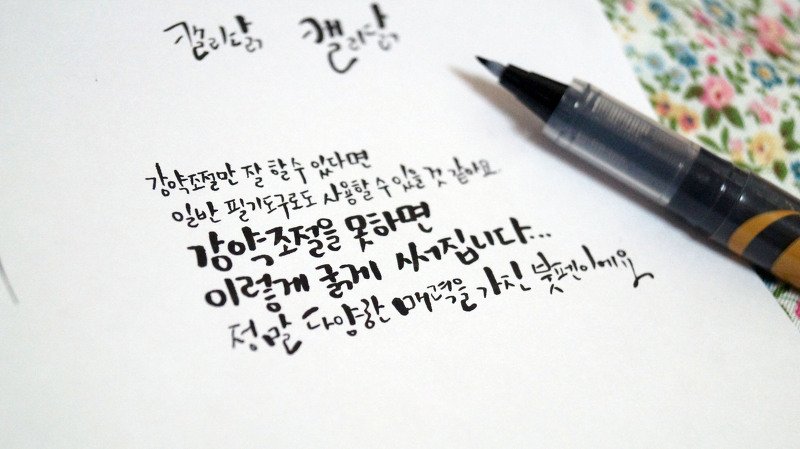 캘리닭 캘리닭
강약조절만 잘 할 수 있다면
일반 필기도구로도 사용할 수 있을 것 같아요.
강약조절을 못하면
이렇게 굵게 써집니다...
정말 다양한 매력을 가진 붓펜이에요